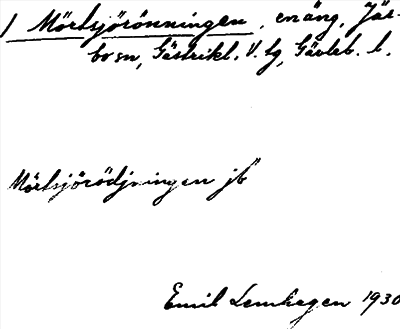 1 Mörtsjörönningen, en äng, Jär-
bo sn, Gästrikl. V. tg, Gävleb. l.
Mörtsjörödjningen jb
Emil Lemhagen 1930